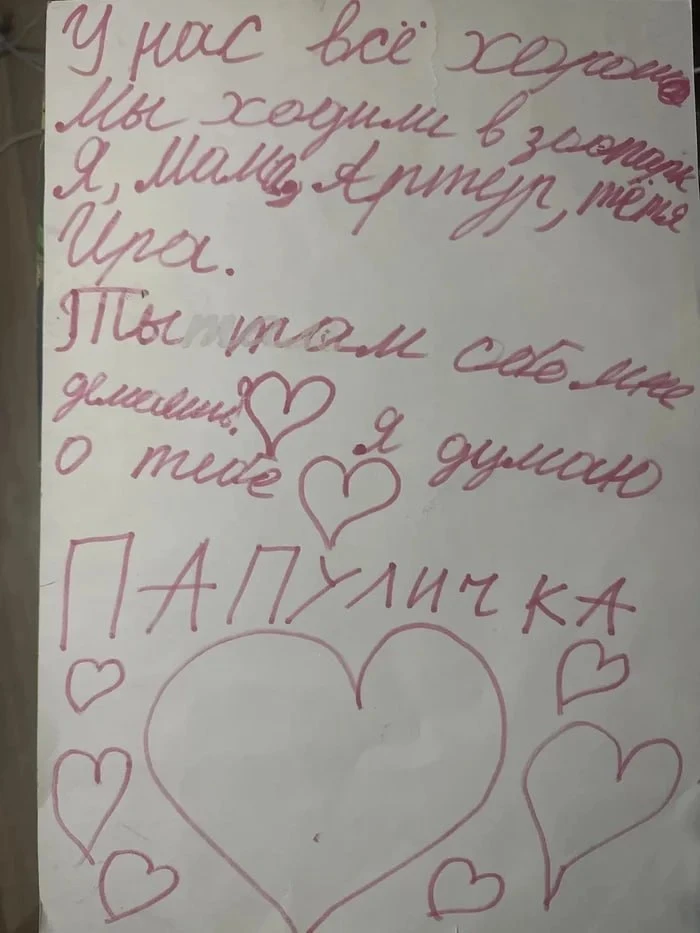 У нас всё хорошо
Мы ходили в зоопарк
Я, мама, Артур, тётя
Ира.
Ты там обо мне
думаешь? Я думаю
о тебе
ПАПУЛИЧКА